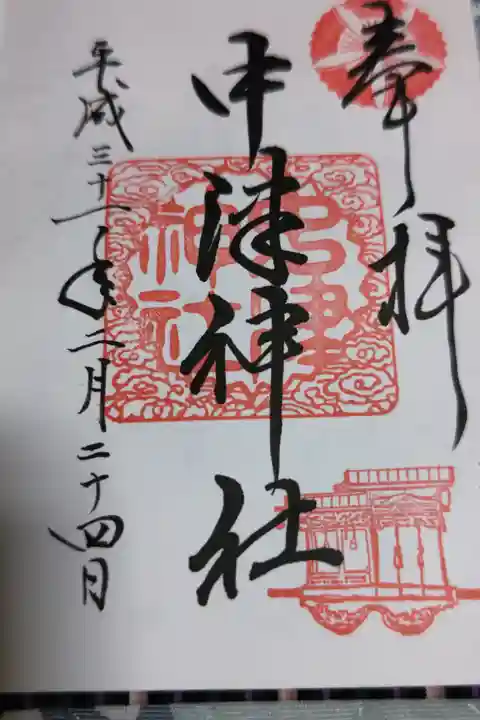 奉拝
中津神社
平成三十一年二月二十四日